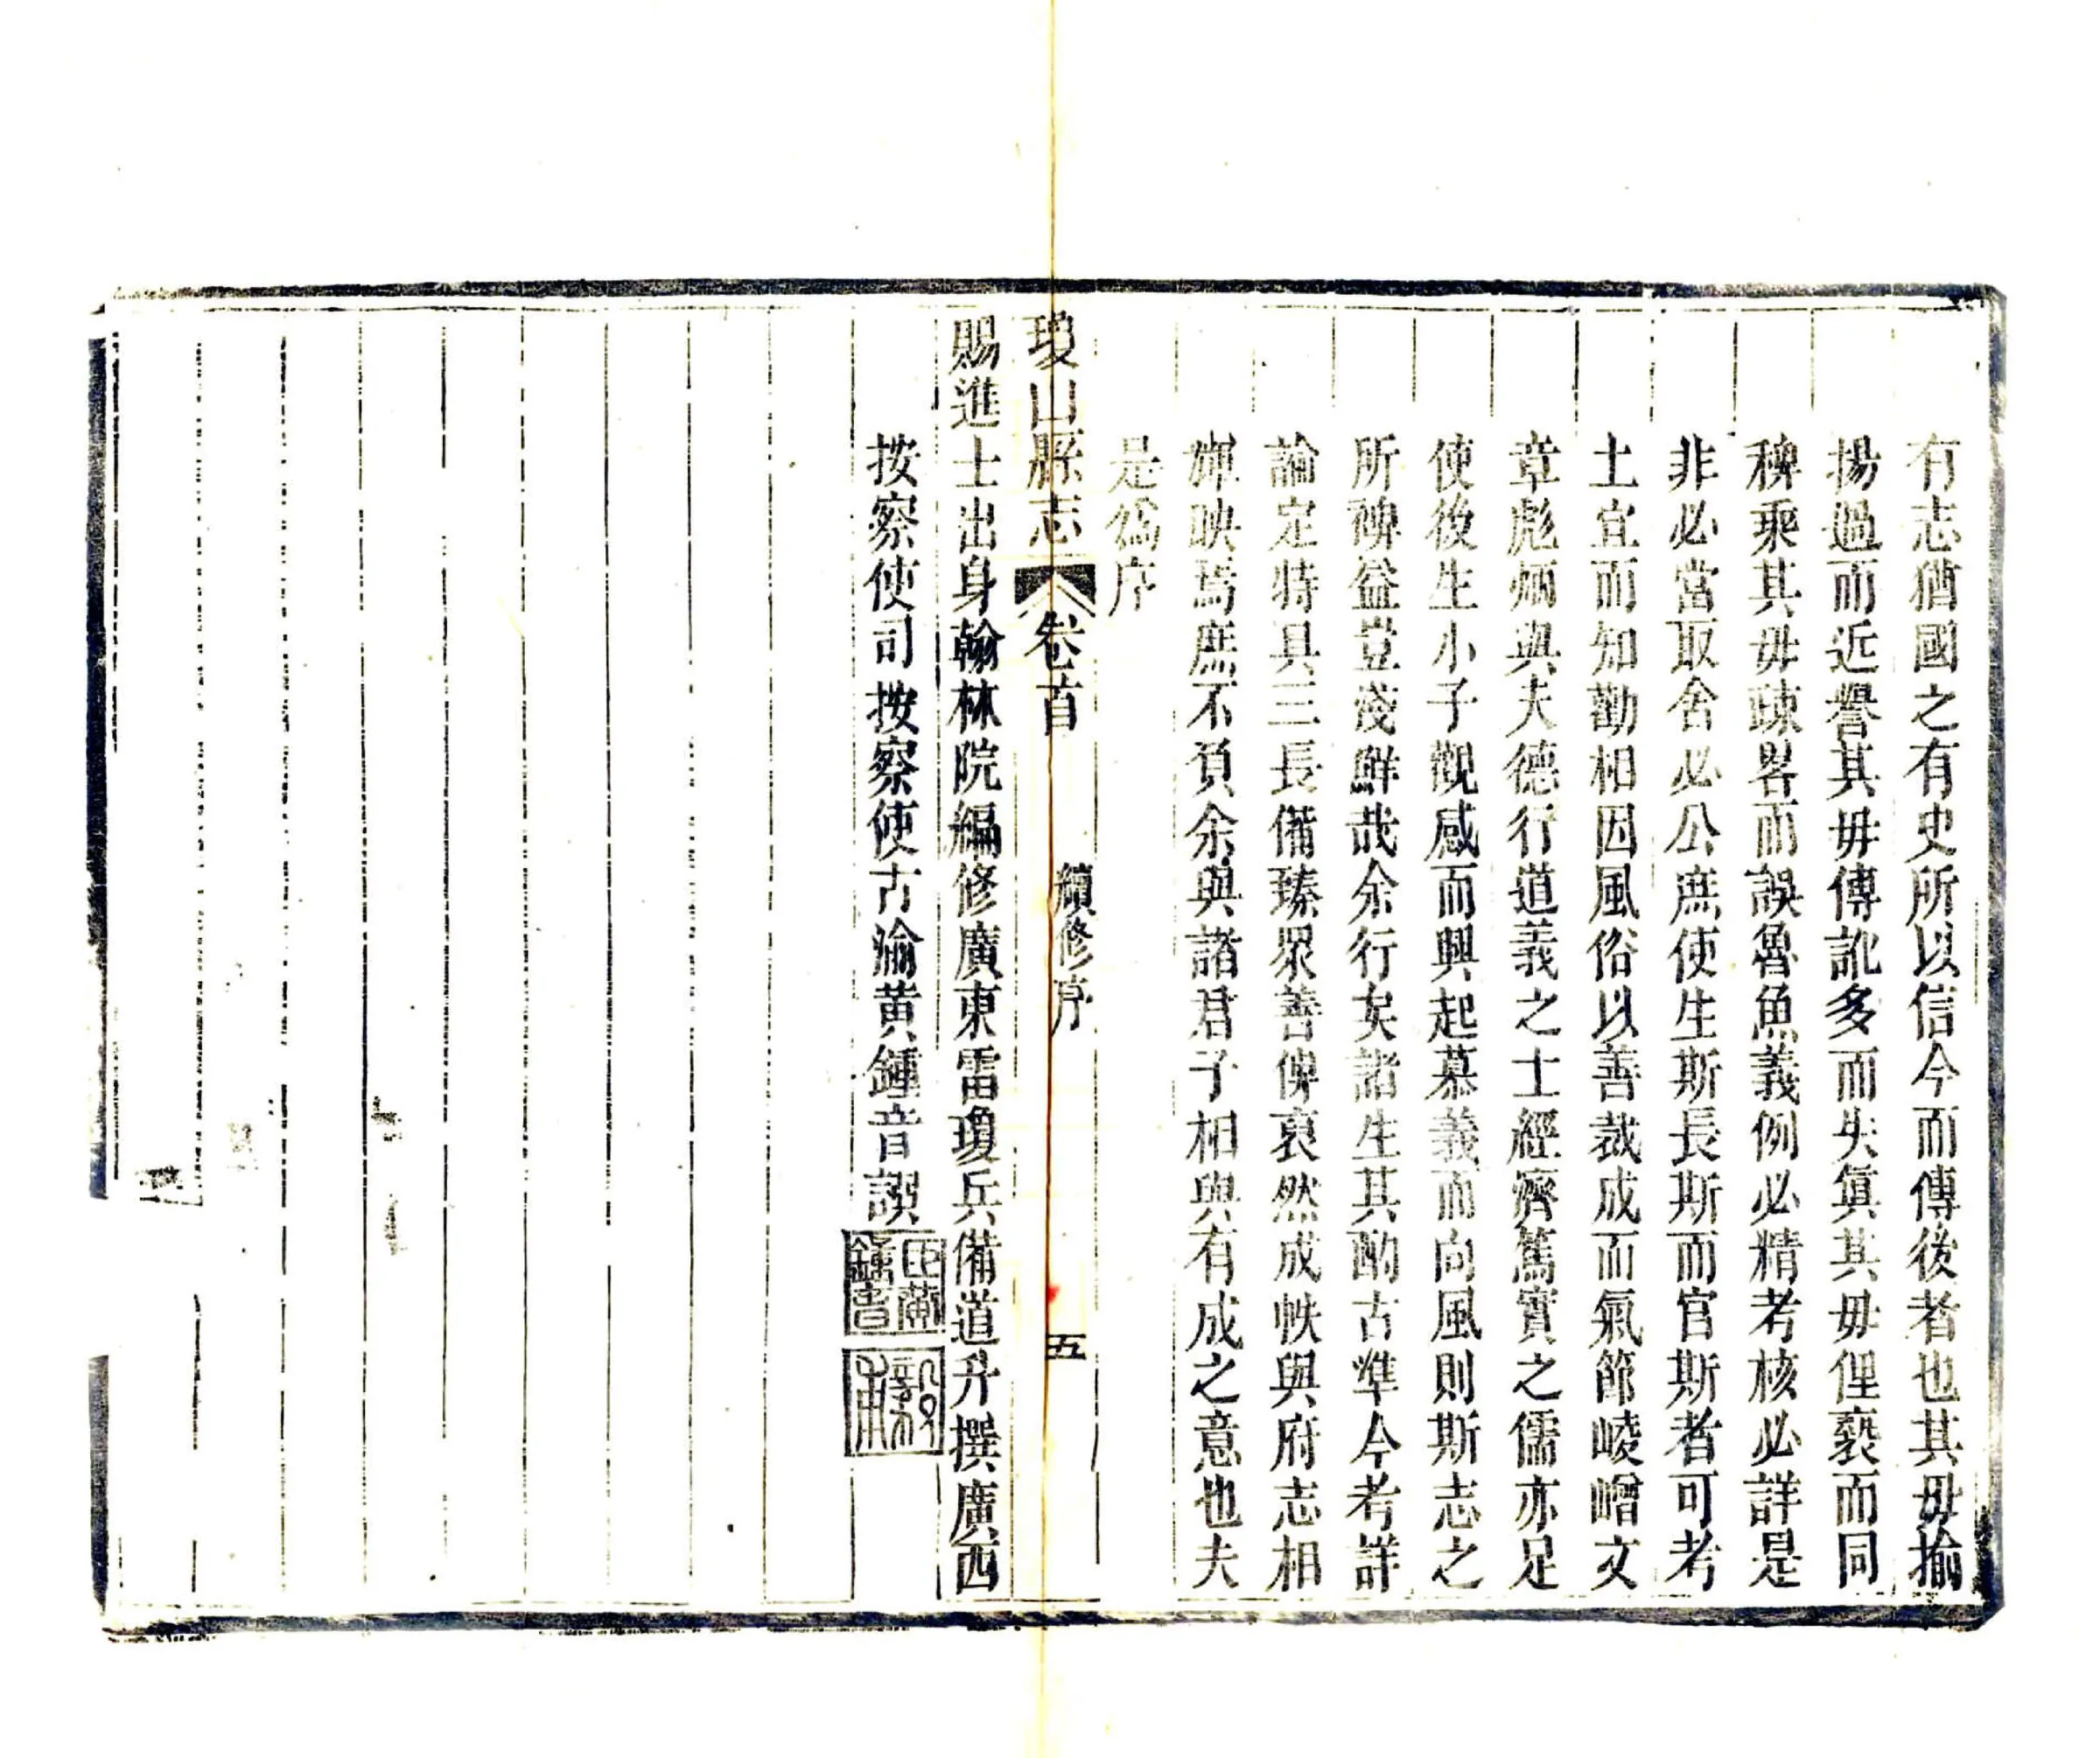 有志猶國之有史所以信今而傳後者也其毋揄
揚過而近譽其毋傳訛多而失眞其毋俚褻而同
稗乘其毋疎畧而誤魯魚義例必精考核必詳是
非必當取舍必公庶使生斯長斯而官斯者可考
土宜而知勸相因風俗以善裁成而氣節崚嶒文
章彪炳與夫德行道義之士經濟篤實之儒亦足
使後生小子觀感而興起慕義而向風則斯志之
所裨益豈淺鮮哉余行矣諸生其酌古準今考詳
論定特具三長備臻眾善俾裒然成帙與府志相
輝映焉庶不負余與諸君子相與有成之意也夫
是爲序
瓊山縣志 卷首 續修序 五
賜進士出身翰林院編修廣東雷瓊兵備道升撰廣西
按察使司按察使古渝黃鍾音譔
臣黃鍾音
毅甫